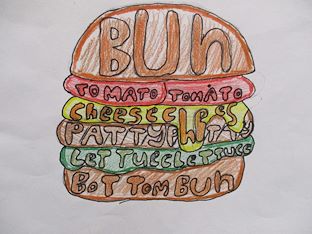 BUN
TOMATO TOMATO
cheesecheese
PATTYPATTY
LETTUCELETTUCE
BOTTOM BUN